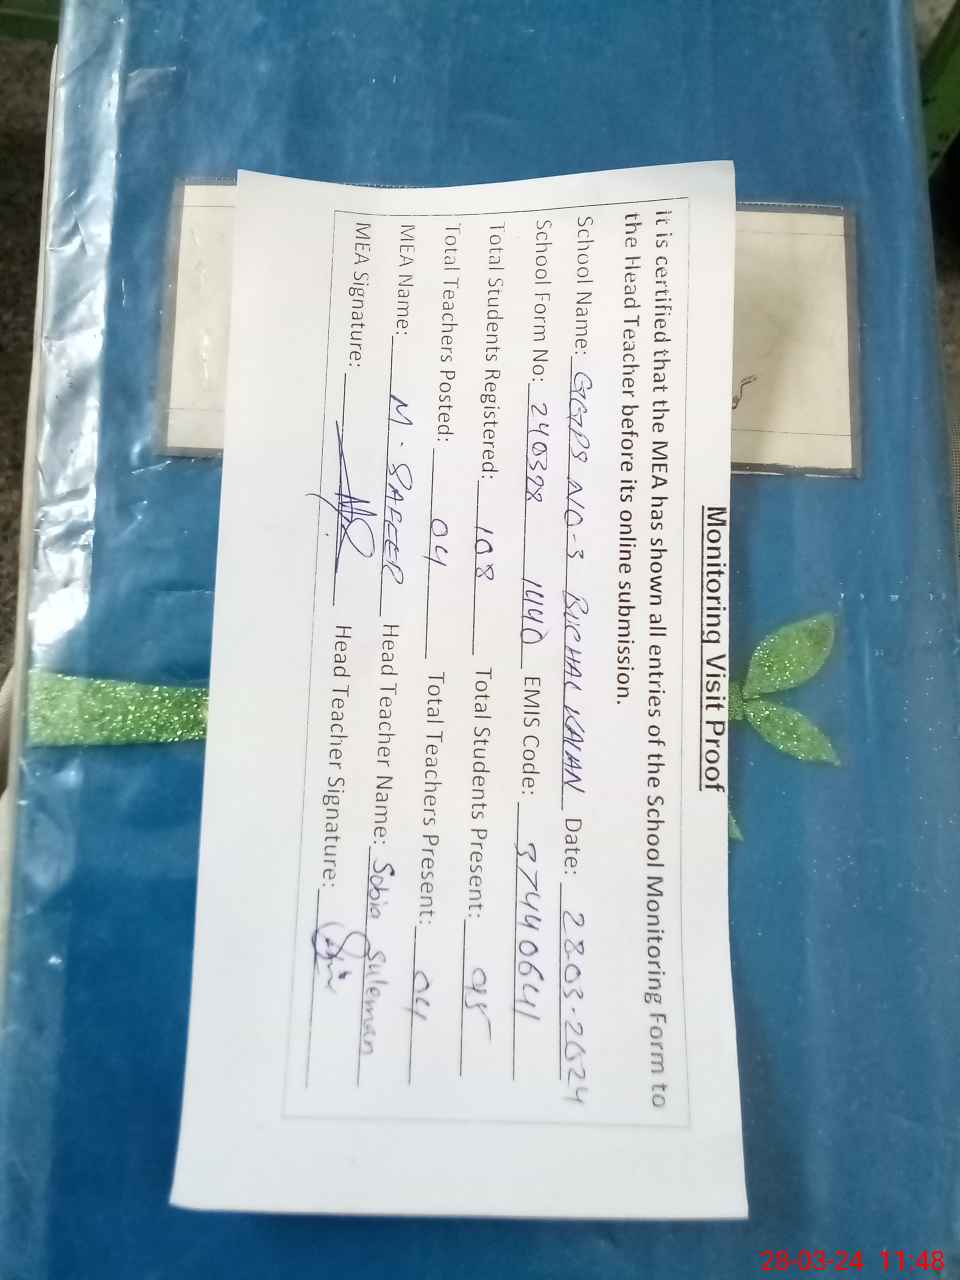 Monitoring Visit Proof
it is certified that the MEA has shown all entries of the School Monitoring Form to
the Head Teacher before its online submission.
School Name: GGPS NO-3 BUCHAL KALAN Date: 28.03-2024
School Form No: 240328 1440 EMIS Code: 37440641
Total Students Registered: 108 Total Students Present: 95
Total Teachers Posted: 04 Total Teachers Present: 04
MEA Name: M. SAFEER Head Teacher Name: Sobia Suleman
MEA Signature: Head Teacher Signature:
28-03-24 11:48